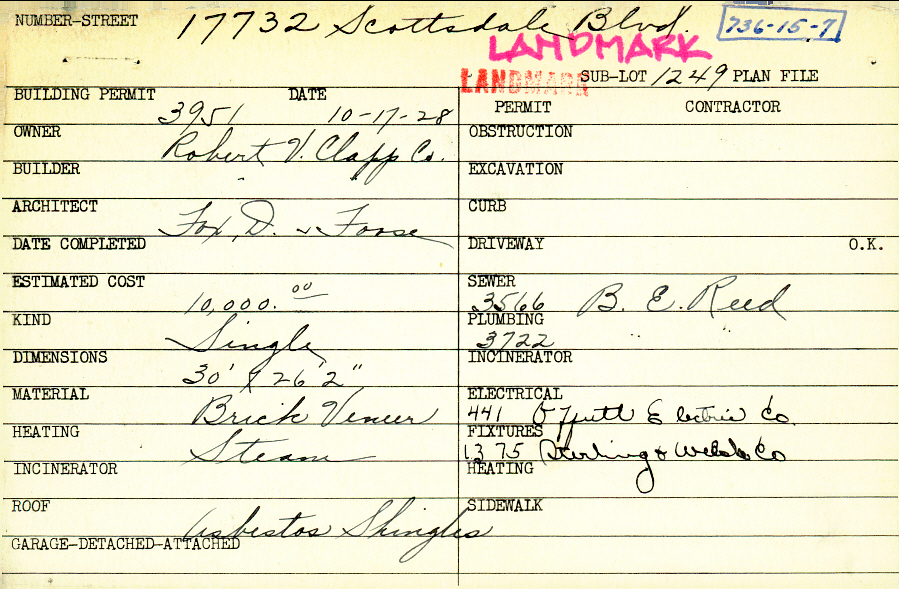 NUMBER-STREET 17732 Scottsdale Blvd. 736-15-7
LANDMARK
LANDMARK SUB-LOT 1249 PLAN FILE
BUILDING PERMIT 3951 DATE 10-17-28
PERMIT CONTRACTOR
OWNER Robert V. Clapp Co.
OBSTRUCTION
BUILDER "
EXCAVATION
ARCHITECT Fox, D. & Foose
CURB
DATE COMPLETED
DRIVEWAY O.K.
ESTIMATED COST 10,000.00
SEWER 3566 B. E. Reed
KIND Single
PLUMBING 3722 " "
DIMENSIONS 30' X 26' 2"
INCINERATOR
MATERIAL Brick Veneer
ELECTRICAL 441 Electric Co.
HEATING Steam
FIXTURES 1375 Sterling & Welch Co
INCINERATOR
HEATING
ROOF Asbestos Shingles
SIDEWALK
GARAGE-DETACHED-ATTACHED